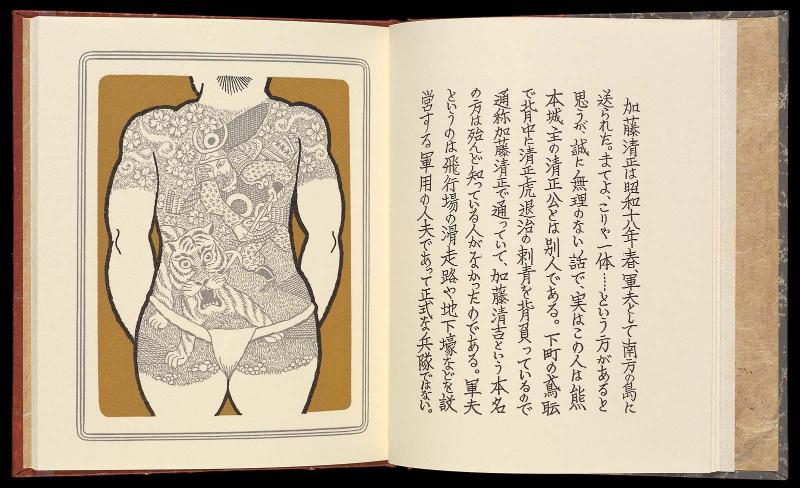 加藤清正は昭和十八年春、軍夫として南方の島に
送られた。まてよ、こりや一体……という方があると
思うが、誠に無理のない話で、実はこの人は熊
本城主の清正公とは別人である。下町の鳶職
で背中に清正虎退治の刺青を背負っているので
通称加藤清正で通っていて、加藤清吉という本名
の方は殆んど知っている人がなかったのである。軍夫
というのは飛行場の滑走路や、地下壕などを設
営する軍用の人夫であって正式な兵隊ではない。